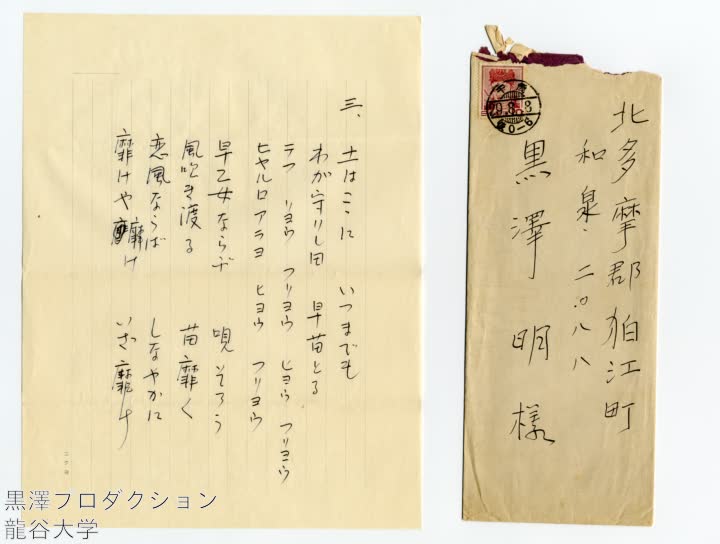 三、土はここに いつまでも
わが守りし田 早苗とる
テフ リヨウ フリヨウ ヒヨウ フリヨウ
ヒヤルロアラヨ ヒヨウ フリヨウ
早乙女ならぶ 唄そろう
風吹き渡る 苗靡く
恋風ならば しなやかに
靡けや靡け いざ靡け
北多摩郡狛江町
和泉・二〇八八
黒澤明様
29.8.3
黒澤プロダクション
龍谷大学